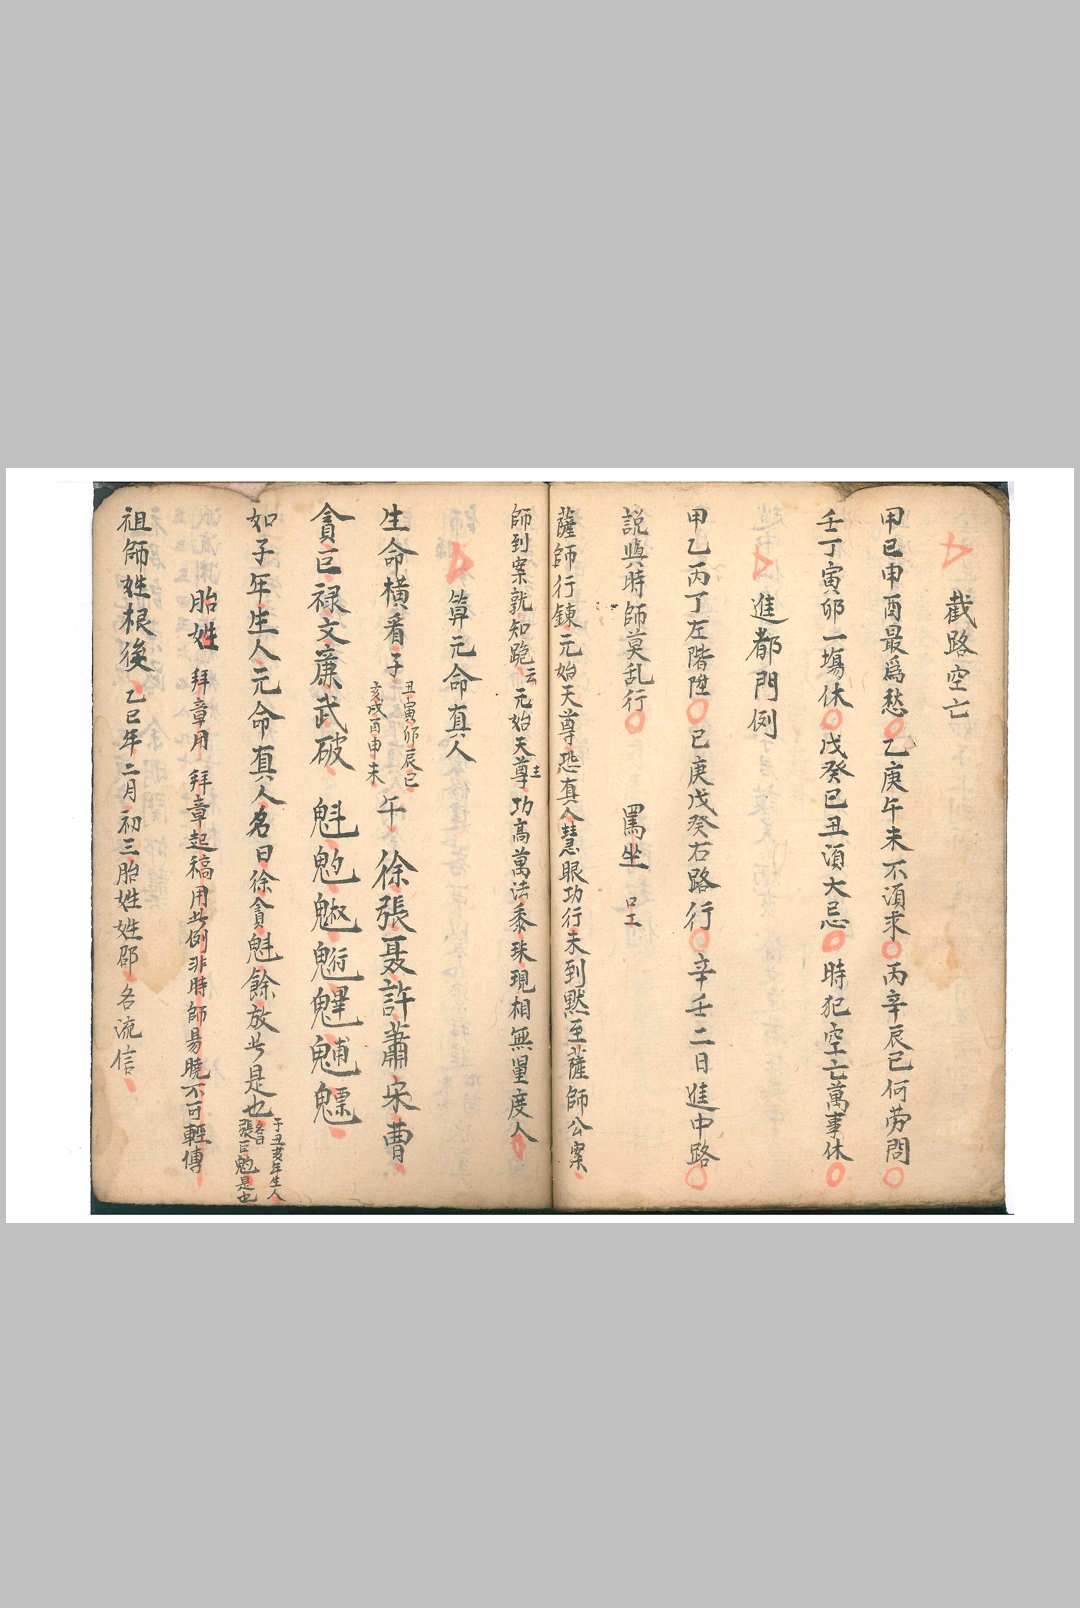 截路空亡
甲己申酉最爲愁乙庚午未不須求丙辛辰巳何劳問
壬丁寅卯一塲休戊癸子丑須大忌時犯空亡萬事休
進都門例
甲乙丙丁左階陞己庚戊癸右路行辛壬二日進中路
說與時師莫乱行 罵坐
薩師行鍊元始天尊恐真人慧眼功行未到黙至薩師公案
師到案就知跪云元始天尊主功高萬法黍珠現相無量度人
算元命真人
生命橫看子丑寅卯辰巳亥戌酉申未午徐張聂許蕭宋曹
貪巨禄文廉武破魁𩲃
如子年生人元命真人名曰徐貪魁餘放此是也于丑亥年生人名曰張巨是也
胎姓 拜章用 拜章起稿用此例非時師易曉不可輕傳
祖師姓根後 乙巳年二月初三胎姓姓郡各流信